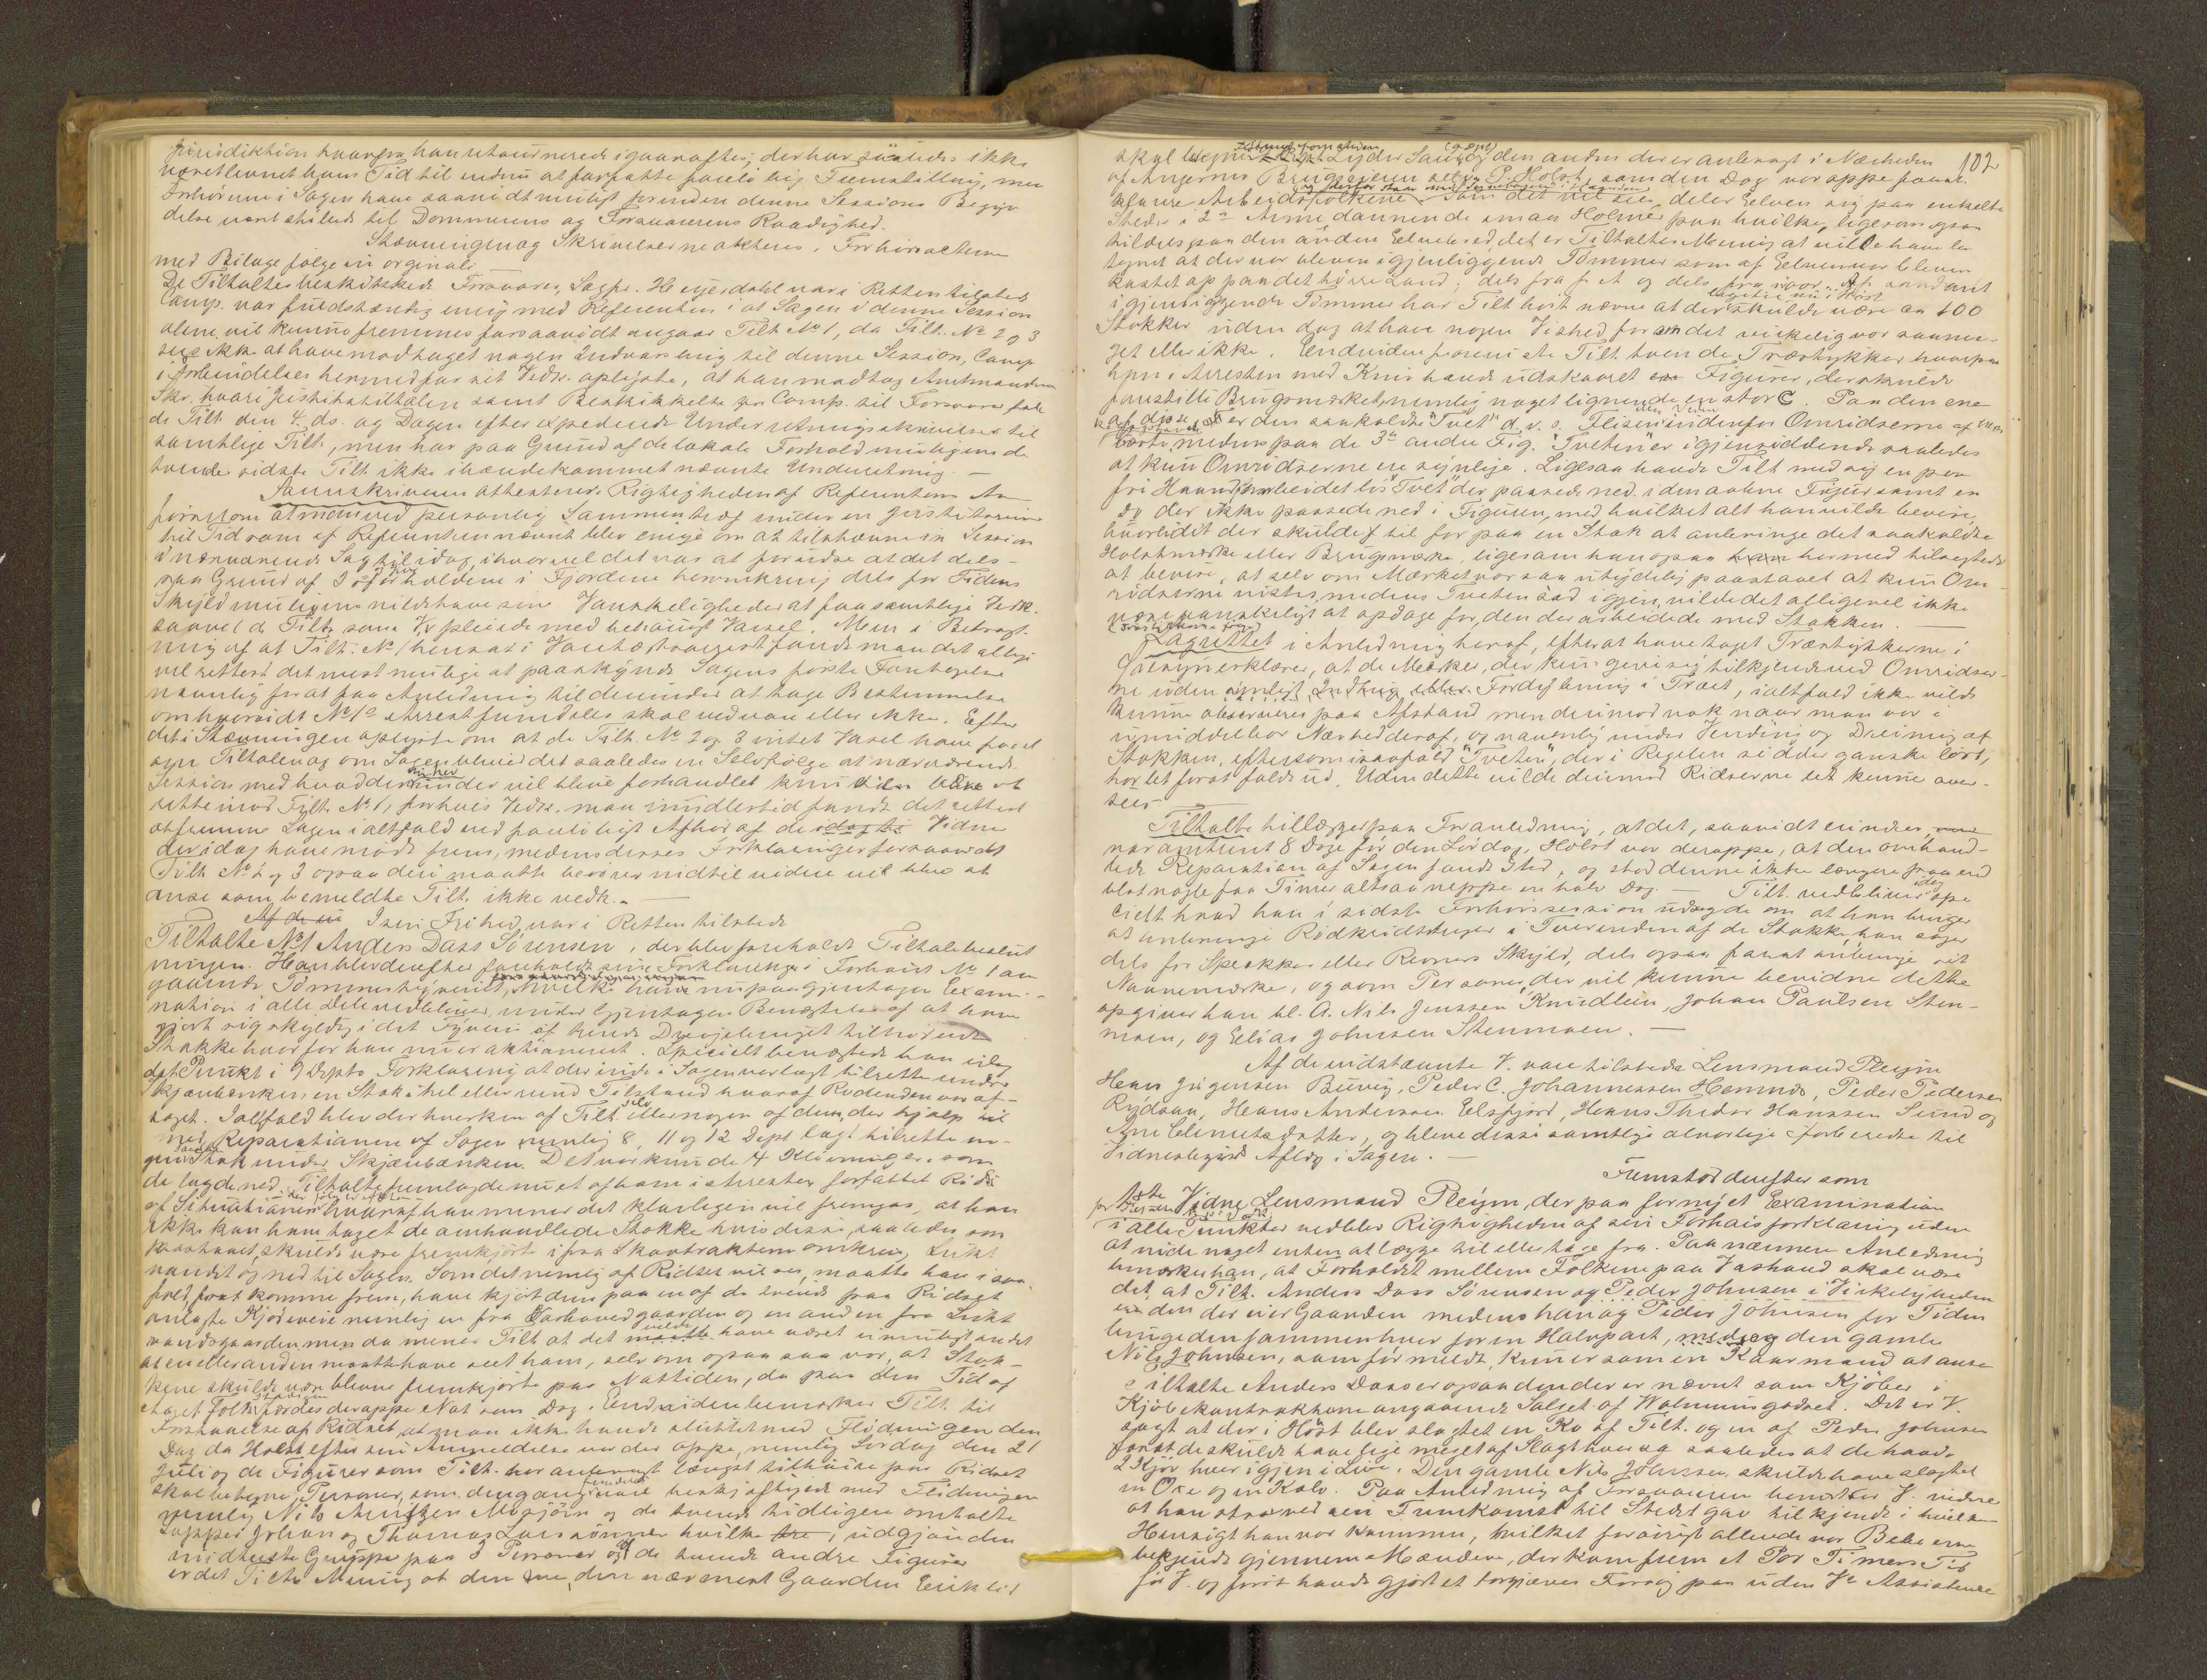 Jurisdiktion hvorfra han returnerede igaaraftes; der har således ikke
været levnet ham Tid til endnu at forfatte foreløbig Fremstilling, men
Forhørene i Sagen have saavidt muligt forinden denne Sessions Begyn
delse været stillede til Dommerens og Forsvarerens Raadighed.
Stævningen og Skrivelserne akteres. Forhørsacterne
med Bilage følge in originali
De Tiltaltes beskikkede Forsvarer, Sagfr. Heyerdahl var i Retten tilstede
Comp. var fuldstændig enig med Referenten i at Sagen i denne Session
alene vil kunne fremmes forsaavidt angaar Tilt. No 1, da Tilt. No 2 og 3
sees ikke at have modtaget nogen Indvarsling til denne Session, Comp
i Forbindelse hermed for sit Vedk. oplyste, at han modtog Amtmandens
Skr. hvori Justitstiltalen samt Beskikkelse for Comp. til Forsvarer for
de Tilt. den 4. ds. og Dagen efter expederede Underretningsskrivelser til
samtlige Tilt., men har paa Grund af de lokale Forhold muligens de
tvende sidste Tilt. ikke ihændekommet nævnte Underretning. —
Sorenskriveren attesterede Rigtigheden af Referentens An
førsel om at man ved personlig Sammentræf under en
til Tid som af Referenten nævnt blev enige om at tilstævne en Session
i nærværende Sag til idag, ihvorvel det var at forudse at det dels
paa Grund af Isforholdene i Fjordene heromkring, dels for Tidens
Skyld muligens vilde have sine Vanskeligheder at faa samtlige Vedk.
saavel de Tiltl. som V. pleiede med behørigt Varsel. Men i Betragt-
ning af at Tilt. No 1 hensat i Varetægtsarrest fandt man det allige
vel rettest det mest mulige at paaskynde Sagens første Foretagelse
navnlig for at faa Anledning til derunder at tage Bestemmelse
om hvorvidt No 1s Arrest fremdeles skal vedvare eller ikke. Efter
det i Stævningen oplyste om at de Tilt. No 2 og 3 intet Varsel have faaet
om Tiltalen og om Sagen blev det saaledes en Selvfølge at nærværende
Session med hvad derunder vil blive forhandlet kun vil blive at
rette mod Tilt. No 1, for hvis Vedk. man imidlertid fandt det rettest
at fremme Sagen ialtfald ved foreløbigt Afhør af de Vidner
der idag have mødt frem, medens disses Forklaringer forsaavidt
Tilt. No 2 og 3 ogsaa deri maatte berøres indtil videre vil blive at
anse som bemeldte Tilt. ikke vedk. —
I sin Frihed var i Retten tilstede
Tiltalte No 1 Anders Dass Sørensen, der blev foreholdt Tiltalebeslut
ningen. Han blev derefter foreholdt sine Forklaringer i Forhøret No 1 an
gaaende Tømmertyveriet, hvilke han nu paa gjentagen Exami-
nation i alle Dele vedbliver, under gjentagen Benægtelse af at have
gjort sig skyldig i det Tyveri af tvende tilhørende
Stokke hvorfor han nu er aktioneret. Specielt benægtede han idag
det Punkt i Forklaring at der inde i Sagen var lagt tilrette under
Skjærbænken en Stok i hel eller rund Tilstand hvoraf Rodenden var af-
taget. Ialfald blev der hverken af Tilt. selv eller nogen af dem, der hjalp til
med Reparationen af Sagen nemlig 8, 11 og 12 Sept. lagt tilrette no-
gen saadan Stok under Skjærbænken. Det var kun de 4 Kløvninger, som
de lagde ned. Tiltalte fremlagde nu et af ham i Arresten forfattet Rids
af Situationen hvoraf han mener det klarligen vil fremgaa, at han
ikke kan have taget de omhandlede Stokke hvis disse, saaledes som
paastaaet, skulde være fremkjørte ifra Skovtrakten omkring Lukt
vandet og ned til Sagen. Som det nemlig af Ridset vil sees, maatte han i saa
fald, for at komme frem, have kjørt dem paa en af de tvende paa Ridset
anlagte Kjøreveie nemlig en fra Varhaved gaarden og en anden fra Lukt
vandsgaarden, men da mener Tilt. at det vilde have været umuligt andet
at en eller anden maatte have seet ham, selv om ogsaa saa var, at Stok-
kene skulde være blevne fremkjørte paa Nattiden, da paa den Tid af
Aaret Folk stadigen færdes deroppe Nat som Dag. Endvidere bemærker Tilt. til
Forstaaelse af Ridset, at man ikke havde sluttet med Flødningen den
Dag da Holst efter sin Anmeldelse var der oppe, nemlig Lørdag den 21
Juli og de Figurer som Tilt. har anbragt længst tilhøire paa Ridset
skal betegne Personer, som dengang vare beskjæftigede med Flødningen
nemlig Nils Antzen Mosjøen og de tvende tidligere omtalte
Lapper Johan og Thomas Larssønner hvilke udgjør den
midterste Gruppe paa 3 Personer og af de tvende andre Figurer
er det Tilts Mening at den ene, den nærmest Gaarden Eriklid
102
skal betegne Lydersaug og den anden der er anbragt i Nærheden
af Angernes Brugseieren selv P. Holst, som den Dag var oppe for at
klarere Arbeidsfolkene. Som det vil sees deler Elven sig paa enkelte
Steder i 2de Arme dannende smaa Holmer paa hvilke, ligesom ogsaa
tildels paa den anden Elvebred, det er Tiltaltes Mening at ville have be
tegnet at der var bleven igjenliggende Tømmer som af Elven var bleven
kastet op paa det tørre Land, dels fra f. A. og dels fra iaar. Af saadant
igjenliggende Tømmer har Tilt. hørt nævne at der skulde være ca 100
Stokke uden dog at have nogen Vished for om det virkelig var saa me-
get eller ikke. Endvidere foreviste Tilt. tvende Træstykker hvorpaa
han i Arresten med Kniv havde udskaaret Figurer, der skulde
forestille Brugsmærket, nemlig noget lignende en stor C. Paa den ene
af disse er den saakaldte "Tvet" d. v. s. Flisen indenfor Omridserne af
borte, medens paa de 3de andre Fig. "Tveten" er igjensiddende saaledes
at kun Omridserne ere synlige. Ligesaa havde Tilt. med sig en paa
fri Haand forarbeidet løs "Tvet" der passede ned i den aabne Figur samt en
do der ikke passede ned i Figuren, med hvilket alt han vilde bevise
hvorledes der skulde til for paa en Stok at anbringe det saakaldte
Holstmærke eller Brugsmærke, ligesom han ogsaa hermed tilsigtede
at bevise, at selv om Mærket var saa utydelig paastaaet at kun Om-
ridserne vistes, medens Tveten sad igjen, vilde det alligevel ikke
være vanskeligt at opdage for den der arbeidede med Stokken. —
Lagrettet i Anledning heraf, efter at have taget Træstykkerne i
Øiesyn erklærer, at de Mærker, der kun give sig tilkjende ved Omridser-
ne uden synligt Indhug eller Fordybning i Træet, ialtfald ikke vilde
kunne observeres paa Afstand men derimod nok naar man var i
umiddelbar Nærhed deraf, og navnlig under Vending og Dreining af
Stokken, eftersom isaafald "Tveten", der i Regelen sidder ganske løst,
har let for at falde ud. Uden dette vilde derimod Ridserne let kunne over-
sees
Tiltalte tillægger paa Foranledning, at det, saavidt erindres,
var omtrent 8 Dage før den Lørdag, Holst var deroppe, at den omhand-
lede Reparation af Sagen fandt Sted, og stod denne ikke længere paa end
blot nogle faa Timer altsaa neppe en halv Dag. — Tilt. vedbliver idag spe
cielt hvad han i sidste Forhørssession udsagde om at han bruger
at anbringe Rødkridtstreger i Tverenden af de Stokke, han sager
dels for Sprækker eller Revners Skyld, dels ogsaa for at anbringe sit
Navnemærke, og som Personer, der vil kunne bevidne dette
opgiver han bl. A. Nils Jenssen Knudlien, Johan Paulsen Sten-
moen, og Elias Johnsen Stenmoen. —
Af de indstævnte V. vare tilstede Lensmand Pleym
Hans Jørgensen Buvig, Peder C. Johannessen Hemnes, Peder Pedersen
Rydsaa, Hans Anderssen Elsfjord, Hans Thedor Hanssen Sund og
Ane Clemetsdatter, og bleve disse samtlige alvorlige forberedte til
Vidnesbyrds Aflæg i Sagen. —
Fremstod derefter som
1ste Vidne Lensmand Pleym, der paa fornyet Examination
i alle Punkter vedblev Rigtigheden af sin Forhørsforklaring uden
at vide noget enten at lægge til eller tage fra. Paa nærmere Anledning
bemærker han, at Forholdet mellem Folkene paa Vashaud skal være
det, at Tilt. Anders Dass Sørensen og Peder Johnsen i Virkeligheden
er den der eier Gaarden medens han og Peder Johnsen for Tiden
bruge den sammen hver for en Halvpart, medens den gamle
Nils Johnsen, som før meldt, kun er som en Kaarmand at anse
Tiltalte Anders Dass er ogsaa den der er nævnt som Kjøber i
Kjøbekontrakterne angaaende Salget af godset. Det er V.
sagt at der i Høst blev slagtet en Ko af Tilt. og en af Peder Johnsen
for at de skulde have lige meget af Slagt hver og saaledes at de havde
2 Kjør hver igjen i Live. Den gamle Nils Johnsen skulde have slagtet
en Oxe og en Kalv. Paa Anledning af Forsvareren beretter V. videre
at han strax ved sin Fremkomst til Stedet gav tilkjende i hvilken
Hensigt han var kommen, hvilket forøvrigt allerede var Beboerne
bekjendt gjennem Mændene, der kom frem et Par Timers Tid
før V. og først havde gjort et forgjæves Forsøg paa uden Vs Assistance